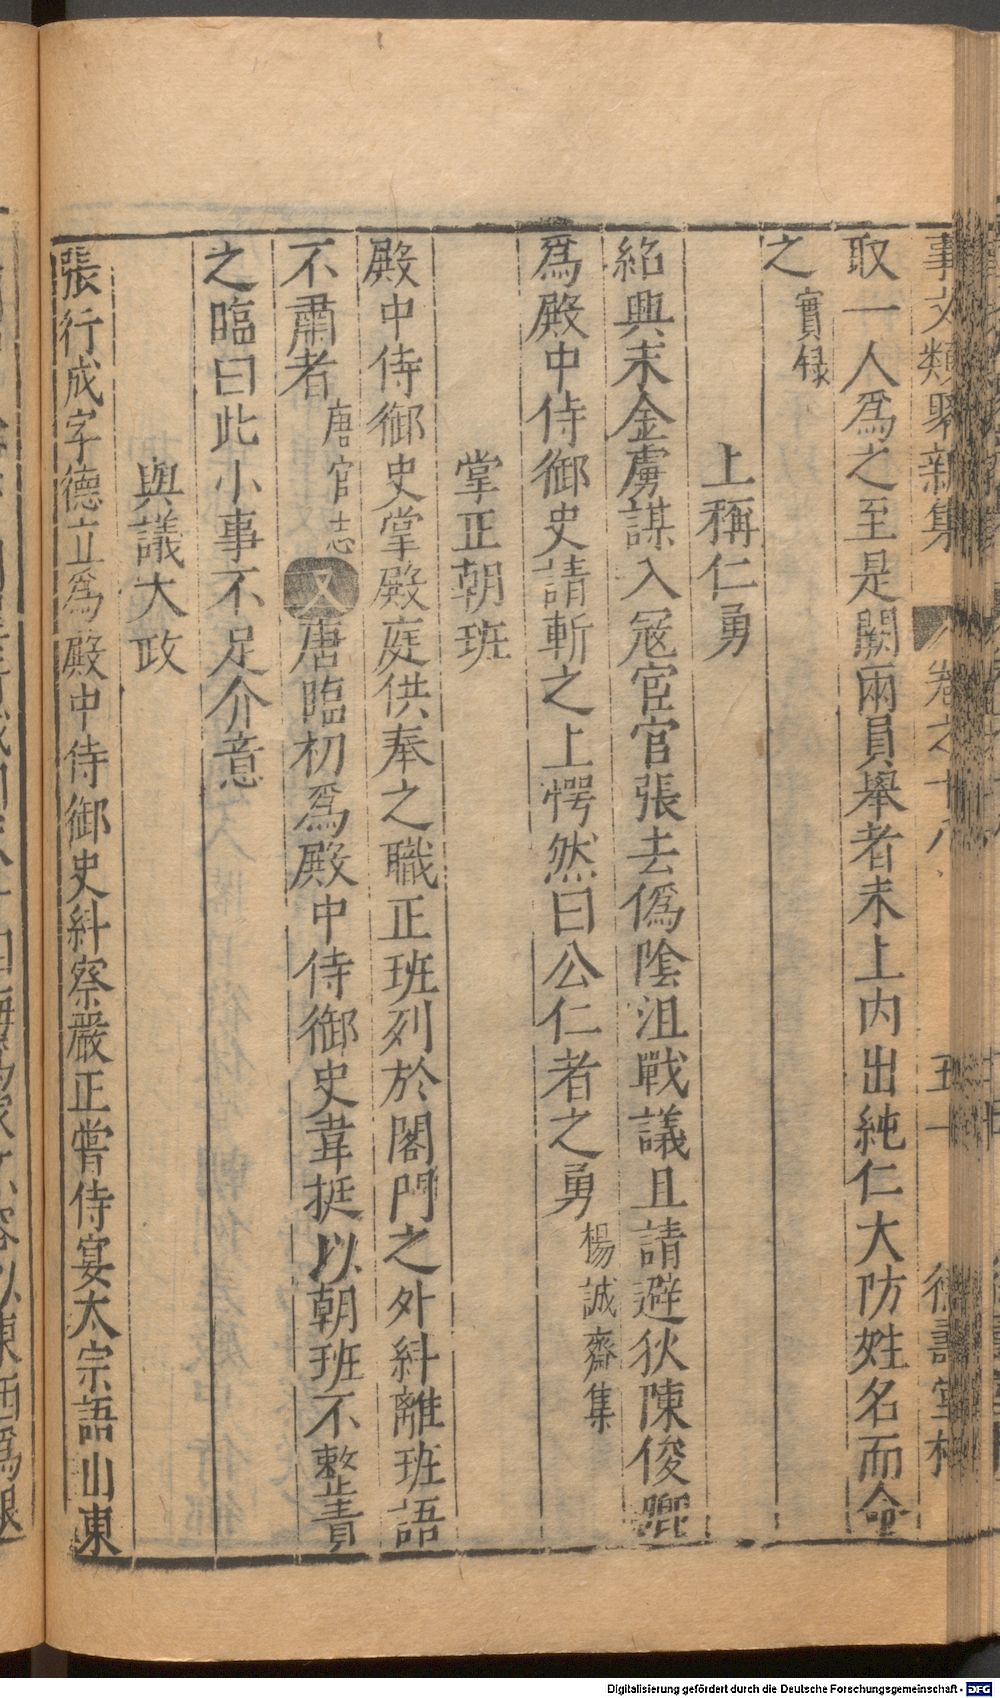 事文類聚新集 卷之十八
取一人爲之至是闕兩員舉者未上内出純仁大防姓名而命
之實録
上稱仁勇
紹興末金虜謀入冦宦官張去僞陰沮戰議且請避狄陳俊卿
爲殿中侍御史請斬之上愕然曰公仁者之勇楊誠齋集
掌正朝班
殿中侍御史掌殿庭供奉之職正班列於閤門之外糾離班語
不肅者唐官志又唐臨初爲殿中侍御史韋挺以朝班不整責
之臨曰此小事不足介意
與議大政
張行成字德立爲殿中侍御史糾察嚴正嘗侍宴太宗語山東
Digitalisierung gefördert durch die Deutsche Forschungsgemeinschaft - DFG